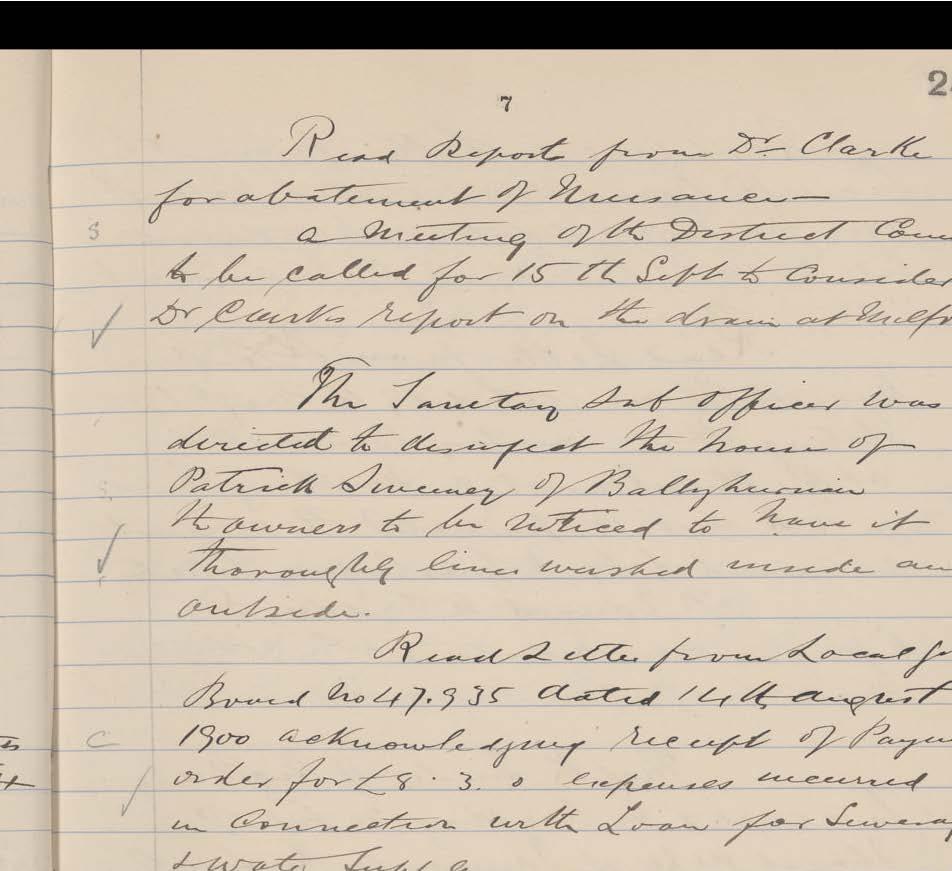 7
2
Read Report from Dr Clarke
for abatement of Nuisance —
S
a Meeting of the District Coun
to be called for 15th Sept to consider
Dr Clarks report on the drain at Milfo
The Sanitary Sub Officer was
directed to disinfect the house of
Patrick Sweeney of
the owners to be noticed to have it
thoroughly lime washed inside an
outside.
Read Letter from Local Go
Board No 47.935 dated 14th August
C
1900 acknowledging receipt of Paym
order for £8.3.0 expenses incurred
in Connection with Loan for Sewerag
& Water